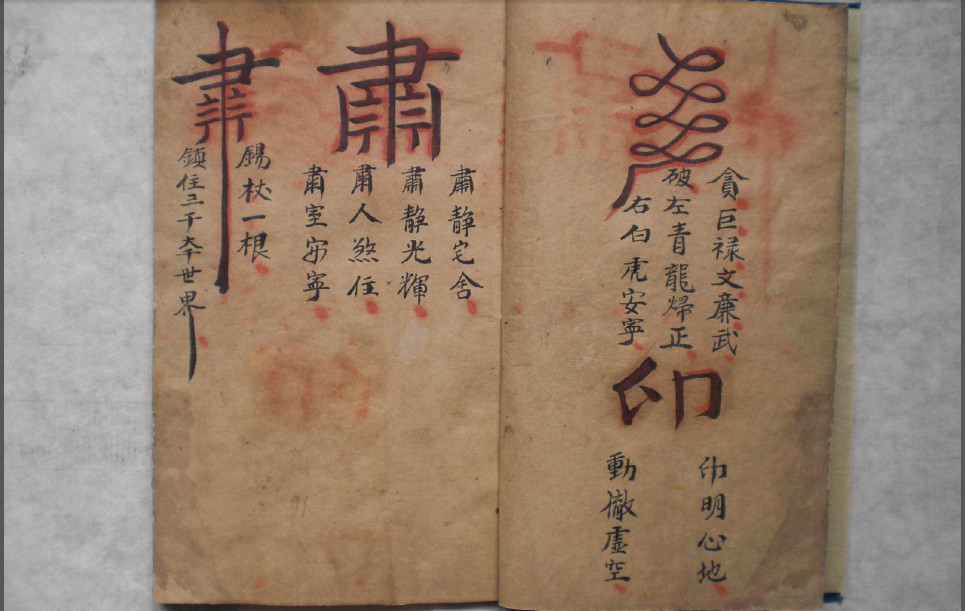 貪巨祿文廉武
破左青龍歸正
右白虎安寧
印
印明心地
動徹虛空
肅
肅靜宅舍
肅靜光輝
肅人煞住
肅室安寧
錫杖一根
鎮住三千大千世界